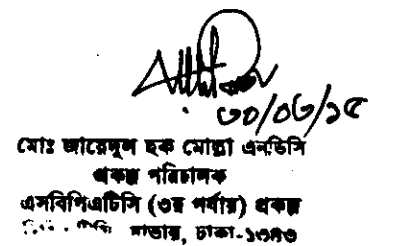 ৩০/০৬/১৫
মোঃ জায়েদুল হক মোল্লা এনডিসি
প্রকল্প পরিচালক
এসবিপিএটিসি (৩য় পর্যায়) প্রকল্প
সাভার, ঢাকা-১৩৪৩